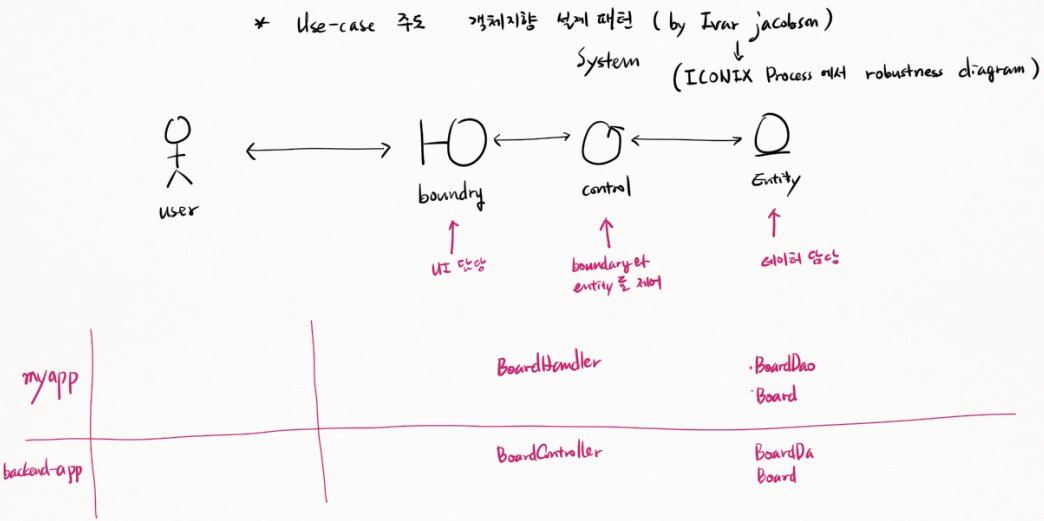 * Use-case 주도 객체지향 설계 패턴 (by Ivar jacobson)
System
(ICONIX Process에서 robustness diagram)
user
boundry
control
Entity
UI 담당
boundary와
entity를 제어
데이터 담당
myapp
BoardHandler
·BoardDao
·Board
backend-app
BoardController
BoardDa
Board